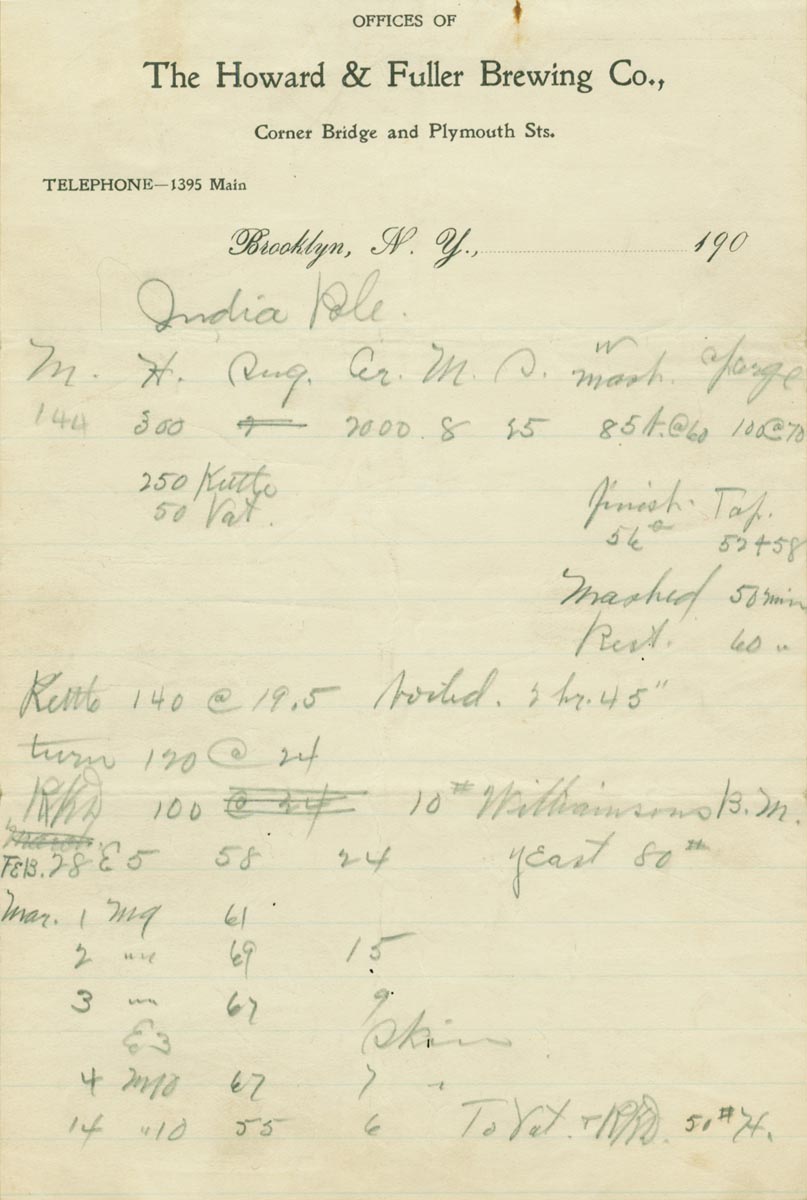 OFFICES OF
The Howard & Fuller Brewing Co.,
Corner Bridge and Plymouth Sts.
TELEPHONE—1395 Main
Brooklyn, N. Y., 190
India Pale.
M. H. Sug. Gr. M. S. in mash. Sparge
144 300 2000 8 25 85 @60 100@70
250 Kettle
50 Vat.
finish. Tap.
56° 57+58
Mashed 50 min
Rest. 60 "
Kettle 140 @ 19.5 boiled. 2 hr. 45"
turn 120 @ 24
RKD 100 @ 24 10# Williamsons B. M.
FEB. 28 E 5 58 24 yEast 80#
Mar. 1 M9 61
2 " " 69 15
3 " " 67 9
E3 Skim
4 M10 67 7 "
14 "10 55 6 To Vat. + RKD. 50# H.